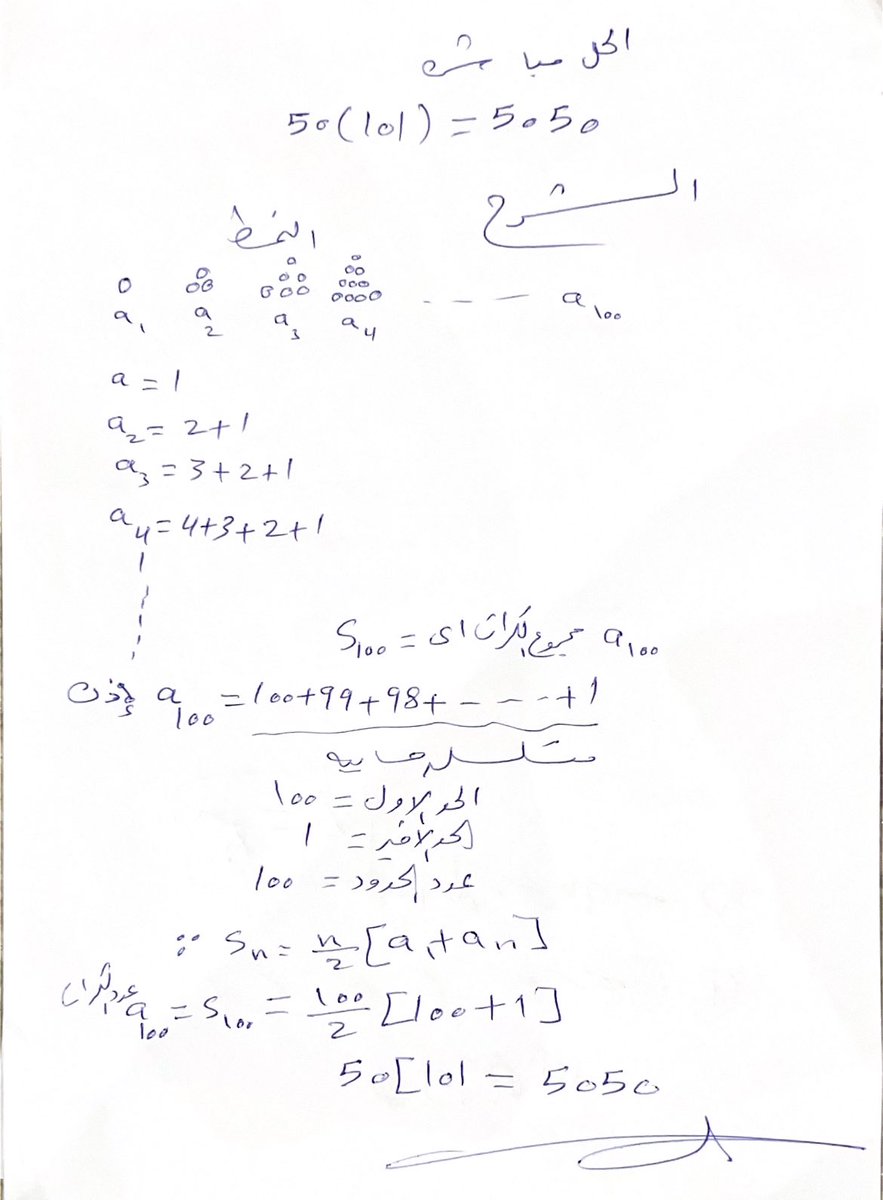 الحل مباشر
50(101) = 5050
الشرح
النمط
a₁ a₂ a₃ a₄ - - - a₁₀₀
a = 1
a₂ = 2+1
a₃ = 3+2+1
a₄ = 4+3+2+1
S₁₀₀ = مجموع الكرات اى a₁₀₀
إذن a₁₀₀ = 100+99+98+ - - - +1
متسلسله حسابيه
الحد الاول = 100
الحد الأخير = 1
عدد الحدود = 100
∵ Sₙ = n/2 [a₁+aₙ]
عدد الكرات a₁₀₀ = S₁₀₀ = 100/2 [100+1]
50[101 = 5050